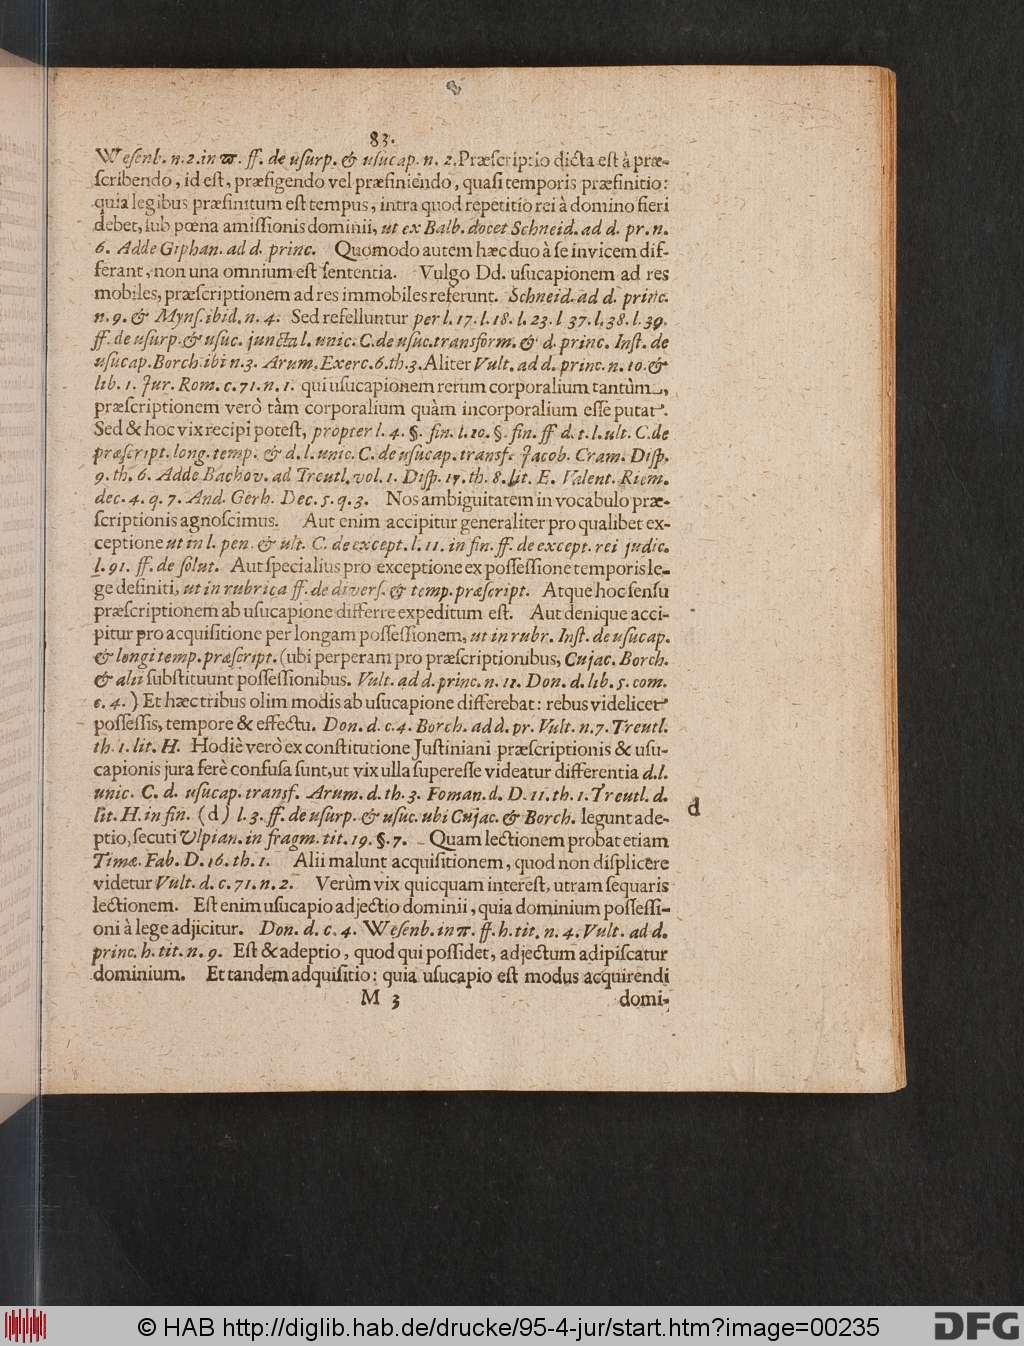 83.
Wesenb. n. 2. in π. ff. de usurp. & usucap. n. 2. Præscriptio dicta est à præ-
scribendo, id est, præfigendo vel præfiniendo, quasi temporis præfinitio:
quia legibus præfinitum est tempus, intra quod repetitio rei à domino fieri
debet, sub pœna amissionis dominii, ut ex Balb. docet Schneid. ad d. pr. n.
6. Adde Giphan. ad d. princ. Quomodo autem hæc duo à se invicem dif-
ferant, non una omnium est sententia. Vulgo Dd. usucapionem ad res
mobiles, præscriptionem ad res immobiles referunt. Schneid. ad d. princ.
n. 9. & Myns. ibid. n. 4. Sed refelluntur per l. 17. l. 18. l. 23. l 37. l. 38. l. 39.
ff. de usurp. & usuc. juncta l. unic. C. de usuc. transform. & d. princ. Inst. de
usucap. Borch. ibi n. 3. Arum. Exerc. 6. th. 3. Aliter Vult. ad d. princ. n. 10. &
lib. 1. Jur. Rom. c. 71. n. 1. qui usucapionem rerum corporalium tantùm,
præscriptionem verò tàm corporalium quàm incorporalium esse putat.
Sed & hoc vix recipi potest, propter l. 4. §. fin. l. 10. §. fin. ff d. t. l. ult. C. de
præscript. long. temp. & d. l. unic. C. de usucap. transf. Jacob. Cram. Disp.
9. th. 6. Adde Bachov. ad Treutl. vol. 1. Disp. 17. th. 8. lit. E. Valent. Riem.
dec. 4. q. 7. And. Gerh. Dec. 5. q. 3. Nos ambiguitatem in vocabulo præ-
scriptionis agnoscimus. Aut enim accipitur generaliter pro qualibet ex-
ceptione ut in l. pen. & ult. C. de except. l. 11. in fin. ff. de except. rei judic.
l. 91. ff. de solut. Aut specialius pro exceptione ex possessione temporis le-
ge definiti, ut in rubrica ff. de divers. & temp. præscript. Atque hoc sensu
præscriptionem ab usucapione differre expeditum est. Aut denique acci-
pitur pro acquisitione per longam possessionem, ut in rubr. Inst. de usucap.
& longi temp. præscript. (ubi perperam pro præscriptionibus, Cujac. Borch.
& alii substituunt possessionibus. Vult. ad d. princ. n. 11. Don. d. lib. 5. com.
c. 4. ) Et hæc tribus olim modis ab usucapione differebat: rebus videlicet
possessis, tempore & effectu. Don. d. c. 4. Borch. ad d. pr. Vult. n. 7. Treutl.
th. 1. lit. H. Hodiè verò ex constitutione Justiniani præscriptionis & usu-
capionis jura ferè confusa sunt, ut vix ulla superesse videatur differentia d. l.
unic. C. d. usucap. transf. Arum. d. th. 3. Foman. d. D. 11. th. 1. Treutl. d.
lit. H. in fin. (d) l. 3. ff. de usurp. & usuc. ubi Cujac. & Borch. legunt ade-
d
ptio, secuti Ulpian. in fragm. tit. 19. §. 7. Quam lectionem probat etiam
Timæ. Fab. D. 16. th. 1. Alii malunt acquisitionem, quod non displicere
videtur Vult. d. c. 71. n. 2. Verùm vix quicquam interest, utram sequaris
lectionem. Est enim usucapio adjectio dominii, quia dominium possessi-
oni à lege adjicitur. Don. d. c. 4. Wesenb. in π. ff. h. tit. n. 4. Vult. ad d.
princ. h. tit. n. 9. Est & adeptio, quod qui possidet, adjectum adipiscatur
dominium. Et tandem adquisitio: quia usucapio est modus acquirendi
M 3 domi-
© HAB http://diglib.hab.de/drucke/95-4-jur/start.htm?image=00235
DFG